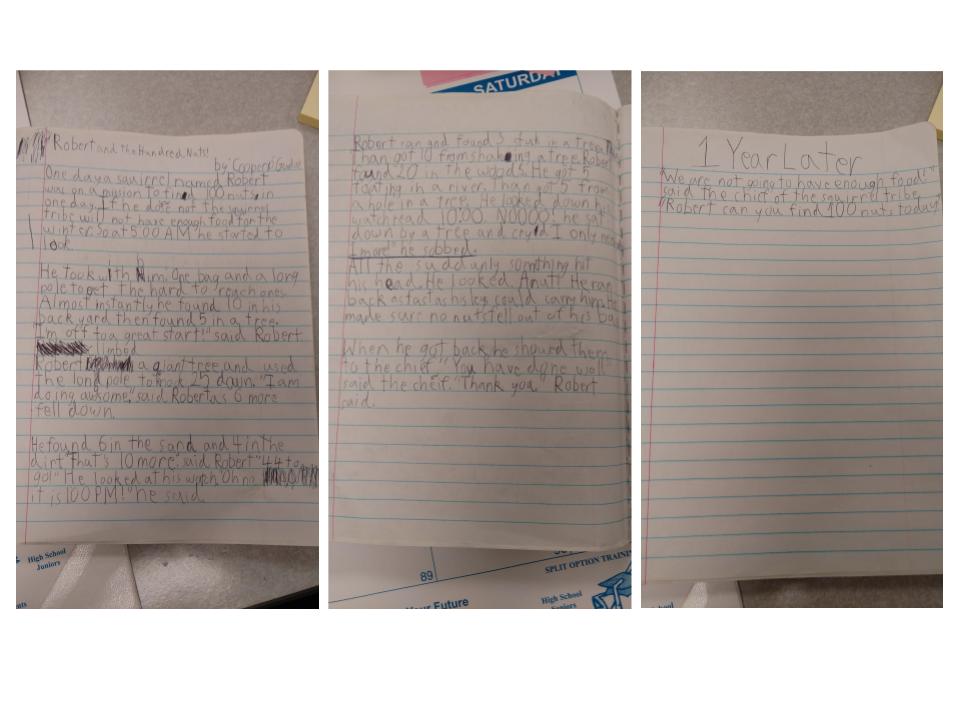 Robert and the Hundred Nuts!
by: Cooper
One day a squirrel named Robert
was on a mission to find 100 nuts in
one day. If he dose not the squirrel
tribe will not have enough food for the
winter. So at 5:00 AM he started to
look.
He took with him. One bag and a long
pole to get the hard to reach ones
Almost instantly he found 10 in his
back yard then found 5 in a tree.
I'm off to a great start!" said Robert.
climbed
Robert a giant tree and used
the long pole to knock 25 down. "I am
doing awsome," said Robert as 6 more
fell down.
He found 6 in the sand and 4 in the
dirt "That's 10 more" said Robert "44 to
go!" He looked at his watch "Oh no
it is 1:00 PM!" he said.
SATURDAY
Robert ran and found 3 stuk in a tree.
than got 10 from shaking a tree. Robert
found 20 in the woods. He got 5
floating in a river. Than got 5 from
a hole in a tree. He looked down his
watch read 10:00. NOOOO! he sat
down by a tree and cryd I only need
1 more" he sobbed.
All the suddunly something hit
his head. He looked. A nut! He ran
back as fast as his leg could carry him. He
made sure no nuts fell out of his bag
When he got back he should them
to the chief. "You have done well"
said the cheif. "Thank you." Robert
said.
1 Year Later
"We are not going to have enough food!"
said the chief of the squirrel tribe
"Robert can you find 100 nuts today"
High School
Juniors
89
SPLIT OPTION TRAINING
Your Future
High School